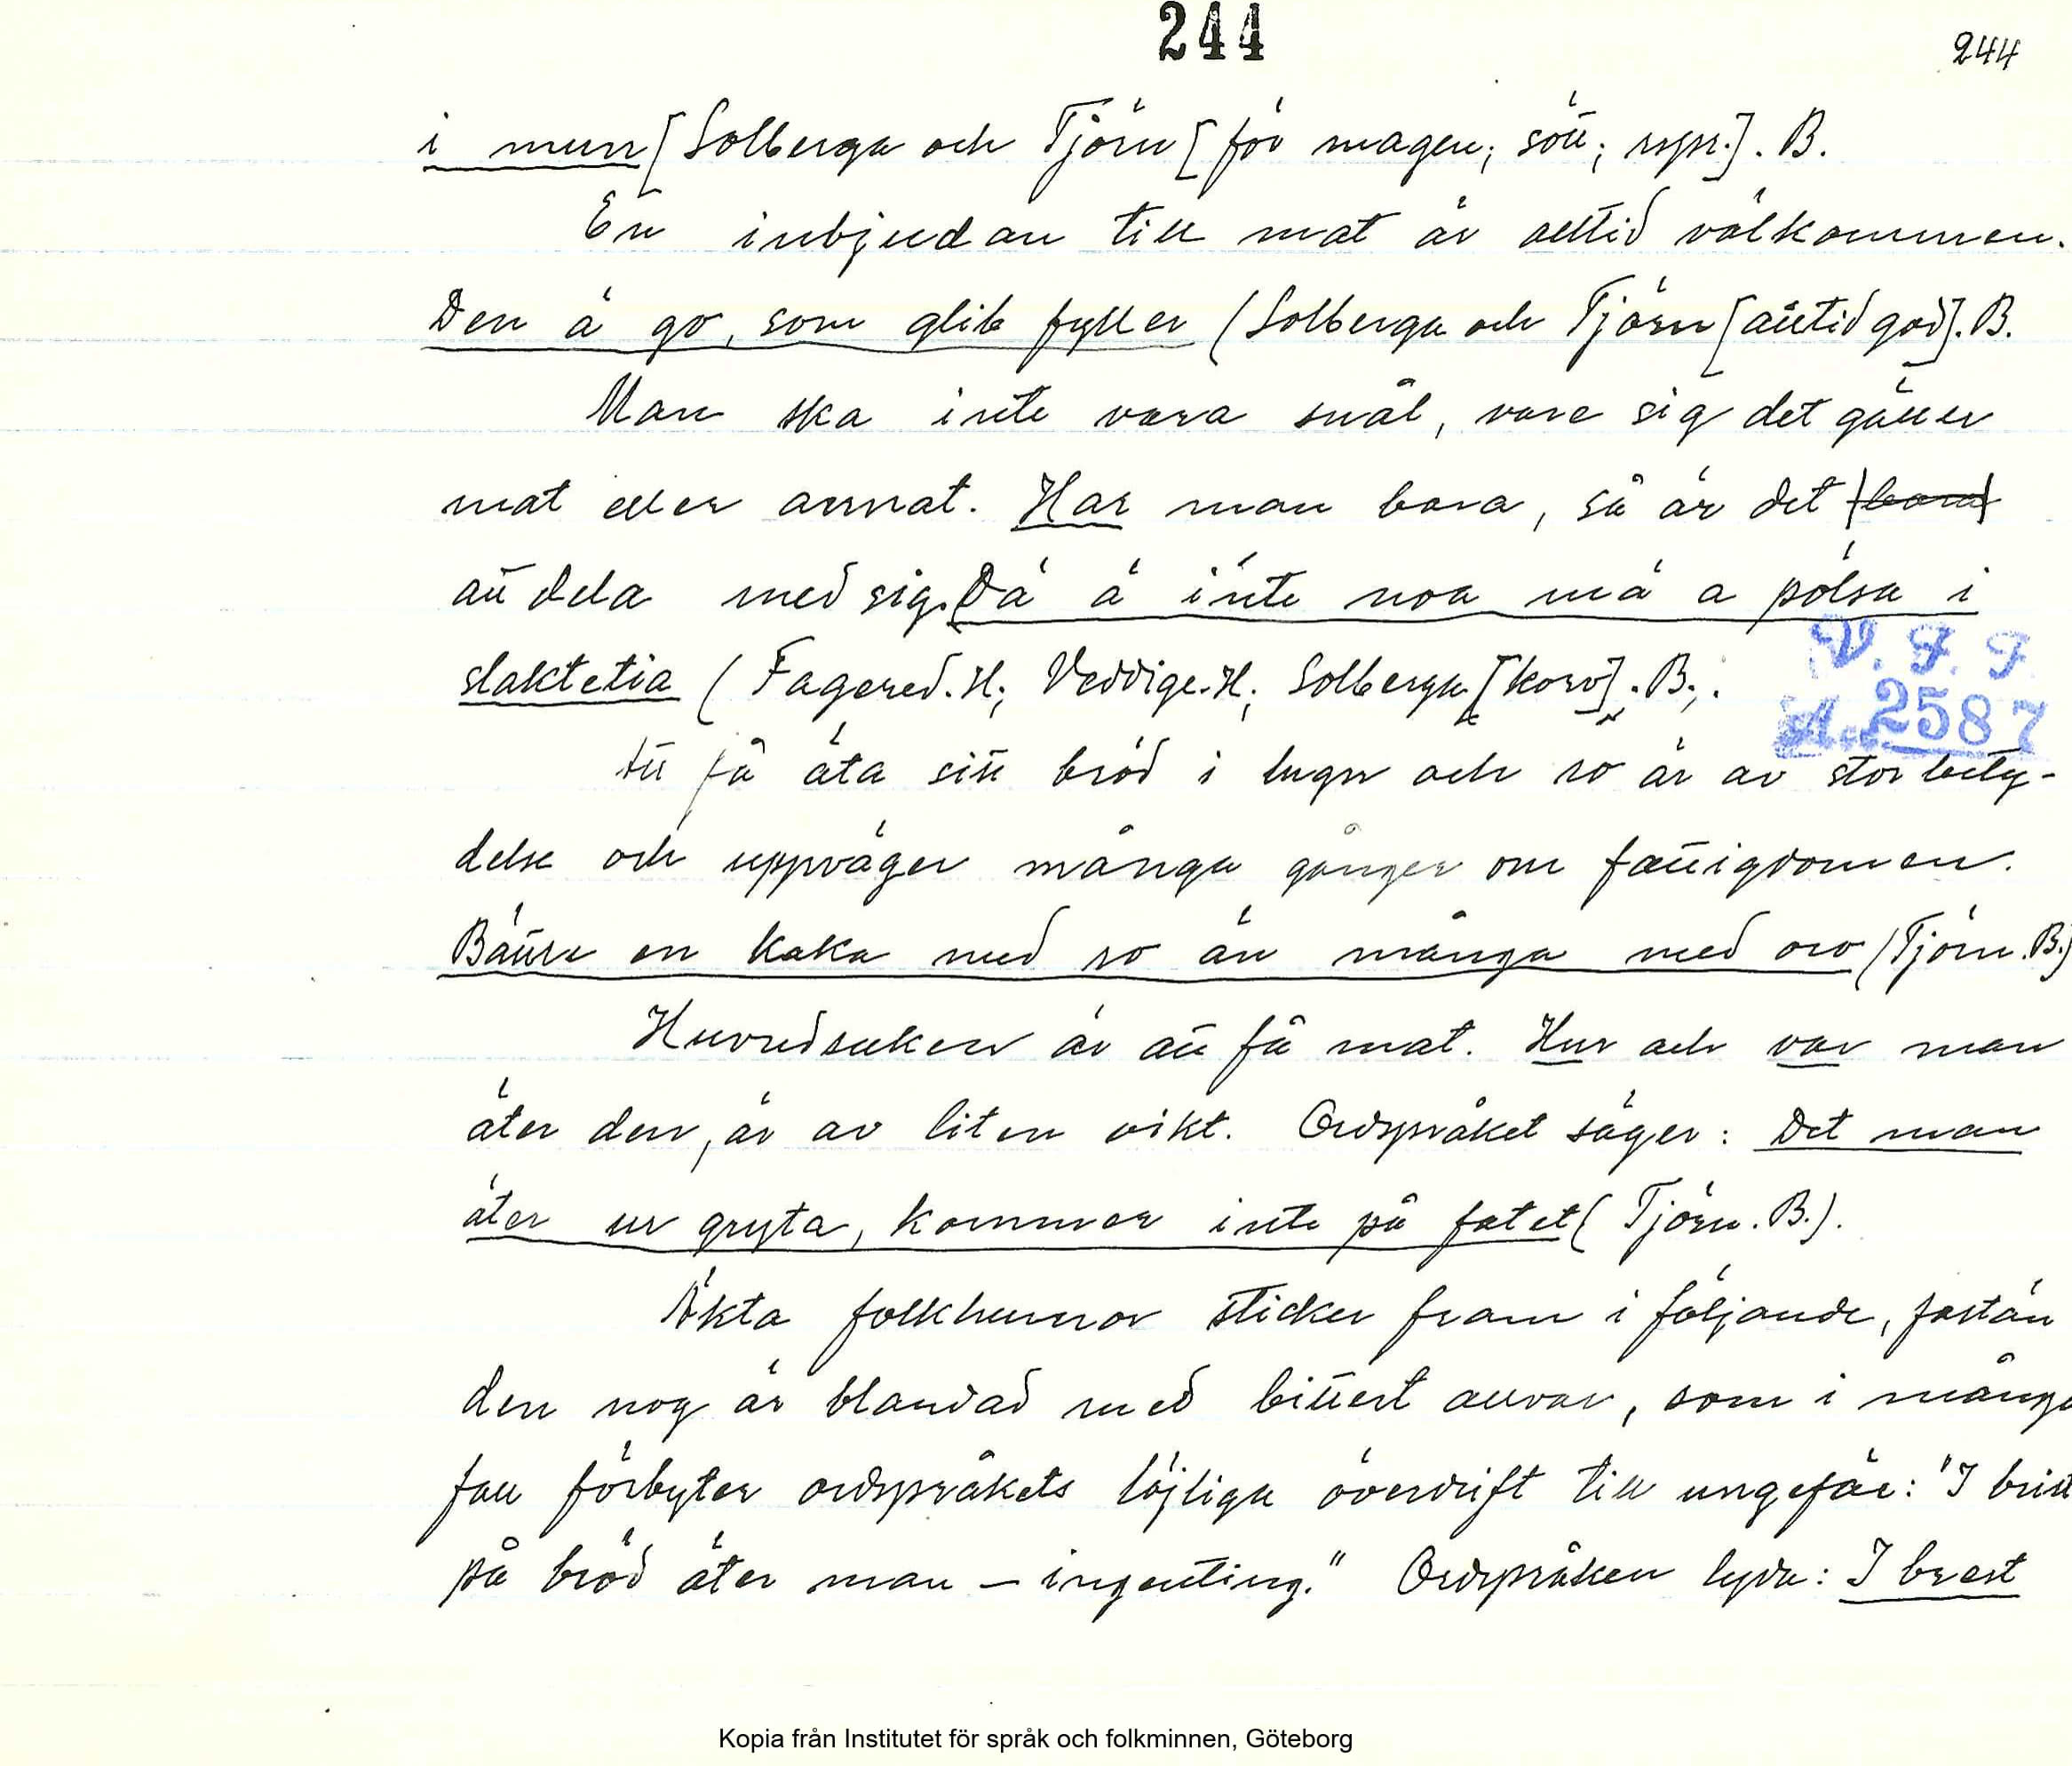 244
244
i mun [Solberga och Tjörn [för magen; sött; rspr.]. B.
En inbjudan till mat är alltid välkommen.
Den ä go, som glib fyller (Solberga och Tjörn [alltid god]. B.
Man ska inte vara snål, vare sig det gäller
mat eller annat. Har man bara, så är det bara
att dela med sig. Dä ä inte noa mä a pölsa i
slaktetia (Fagered. H; Veddige. H; Solberga [korv]. B;.
V. F. F
A. 2587
Att få äta sitt bröd i lugn och ro är av stor bety-
delse och uppväger många gånger om fattigdomen.
Bättre en kaka med ro än många med oro (Tjörn. B.)
Huvudsaken är att få mat. Hur och var man
äter den, är av liten vikt. Ordspråket säger: Det man
äter ur gryta, kommer inte på fatet (Tjörn. B.).
Äkta folkhumor sticker fram i följande, fastän
den nog är blandad med bittert allvar, som i många
fall förbyter ordspråkets löjliga överdrift till ungefär: "I brist
på bröd äter man – ingenting." Ordspråken lyda: I brest
Kopia från Institutet för språk och folkminnen, Göteborg